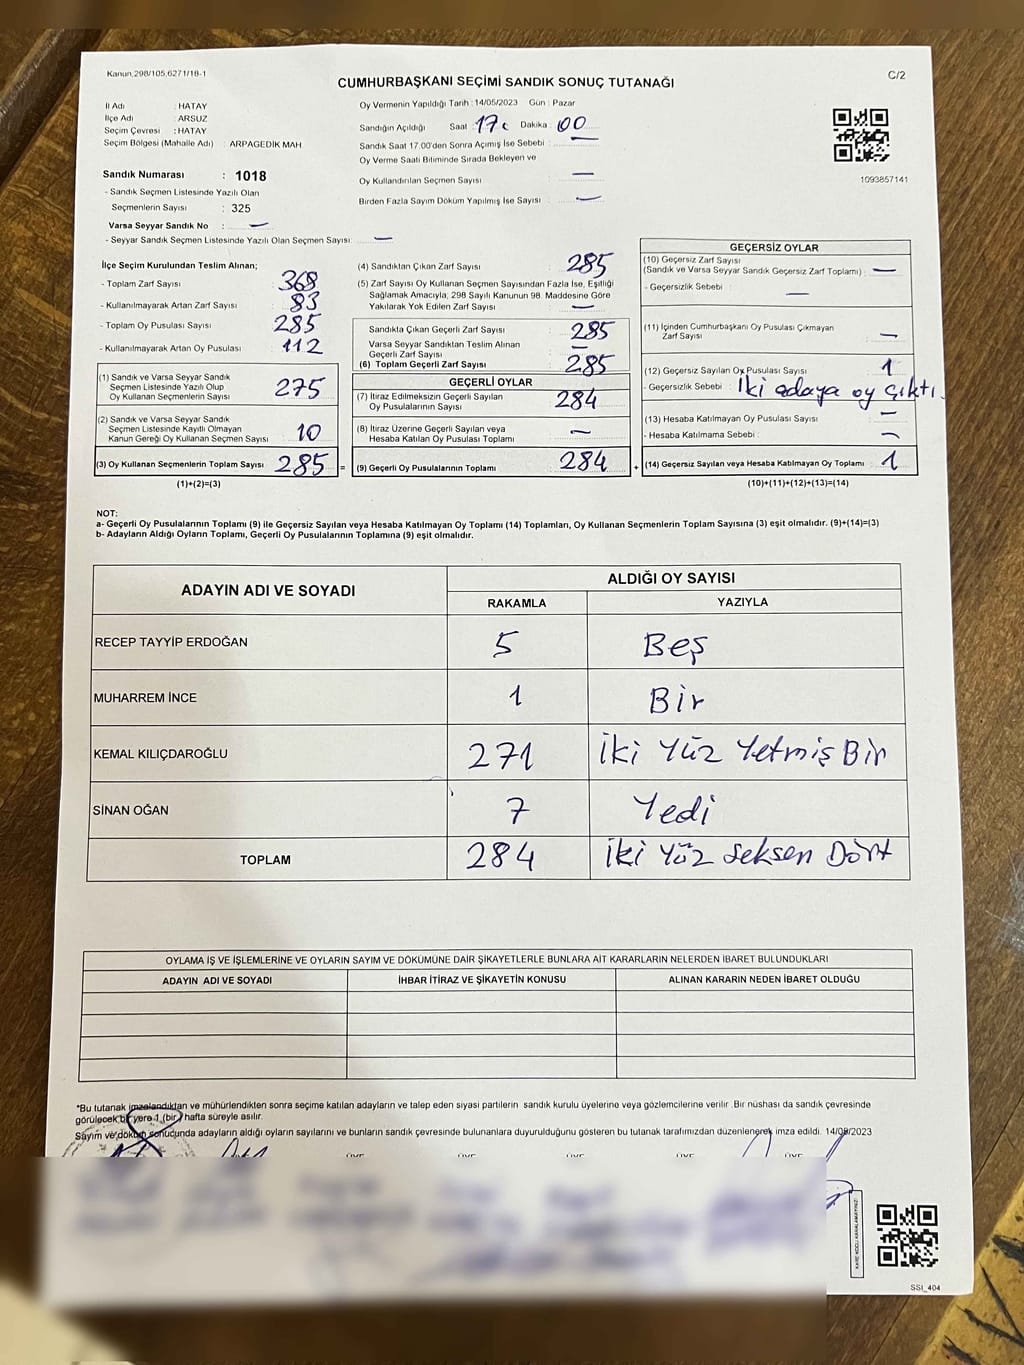 Kanun.298/105,6271/18-1
CUMHURBAŞKANI SEÇİMİ SANDIK SONUÇ TUTANAĞI
C/2
İl Adı : HATAY
İlçe Adı : ARSUZ
Seçim Çevresi : HATAY
Seçim Bölgesi (Mahalle Adı) : ARPAGEDİK MAH
Oy Vermenin Yapıldığı Tarih : 14/05/2023 Gün : Pazar
Sandığın Açıldığı Saat 17 Dakika : 00
Sandık Saat 17.00'den Sonra Açımış İse Sebebi :
Oy Verme Saati Bitiminde Sırada Bekleyen ve
Oy Kullandırılan Seçmen Sayısı : —
Birden Fazla Sayım Döküm Yapılmış İse Sayısı : —
1093857141
Sandık Numarası : 1018
- Sandık Seçmen Listesinde Yazılı Olan
Seçmenlerin Sayısı : 325
Varsa Seyyar Sandık No : —
- Seyyar Sandık Seçmen Listesinde Yazılı Olan Seçmen Sayısı: —
İlçe Seçim Kurulundan Teslim Alınan;
- Toplam Zarf Sayısı 368
- Kullanılmayarak Artan Zarf Sayısı 83
- Toplam Oy Pusulası Sayısı 285
- Kullanılmayarak Artan Oy Pusulası 112
(1) Sandık ve Varsa Seyyar Sandık
Seçmen Listesinde Yazılı Olup
Oy Kullanan Seçmenlerin Sayısı 275
(2) Sandık ve Varsa Seyyar Sandık
Seçmen Listesinde Kayıtlı Olmayan
Kanun Gereği Oy Kullanan Seçmen Sayısı 10
(3) Oy Kullanan Seçmenlerin Toplam Sayısı 285 =
(1)+(2)=(3)
(4) Sandıktan Çıkan Zarf Sayısı 285
(5) Zarf Sayısı Oy Kullanan Seçmen Sayısından Fazla İse, Eşitliği
Sağlamak Amacıyla; 298 Sayılı Kanunun 98. Maddesine Göre
Yakılarak Yok Edilen Zarf Sayısı —
Sandıkta Çıkan Geçerli Zarf Sayısı 285
Varsa Seyyar Sandıktan Teslim Alınan
Geçerli Zarf Sayısı —
(6) Toplam Geçerli Zarf Sayısı 285
GEÇERLİ OYLAR
(7) İtiraz Edilmeksizin Geçerli Sayılan
Oy Pusulalarının Sayısı 284
(8) İtiraz Üzerine Geçerli Sayılan veya
Hesaba Katılan Oy Pusulası Toplamı —
(9) Geçerli Oy Pusulalarının Toplamı 284 +
GEÇERSİZ OYLAR
(10) Geçersiz Zarf Sayısı
(Sandık ve Varsa Seyyar Sandık Geçersiz Zarf Toplamı) —
- Geçersizlik Sebebi : —
(11) İçinden Cumhurbaşkanı Oy Pusulası Çıkmayan
Zarf Sayısı —
(12) Geçersiz Sayılan Oy Pusulası Sayısı 1
- Geçersizlik Sebebi : İki adaya oy çıktı.
(13) Hesaba Katılmayan Oy Pusulası Sayısı —
- Hesaba Katılmama Sebebi : —
(14) Geçersiz Sayılan veya Hesaba Katılmayan Oy Toplamı 1
(10)+(11)+(12)+(13)=(14)
NOT:
a- Geçerli Oy Pusulalarının Toplamı (9) ile Geçersiz Sayılan veya Hesaba Katılmayan Oy Toplamı (14) Toplamları, Oy Kullanan Seçmenlerin Toplam Sayısına (3) eşit olmalıdır. (9)+(14)=(3)
b- Adayların Aldığı Oyların Toplamı, Geçerli Oy Pusulalarının Toplamına (9) eşit olmalıdır.
ADAYIN ADI VE SOYADI
ALDIĞI OY SAYISI
RAKAMLA YAZIYLA
RECEP TAYYİP ERDOĞAN 5 Beş
MUHARREM İNCE 1 Bir
KEMAL KILIÇDAROĞLU 271 İki Yüz Yetmiş Bir
SİNAN OĞAN 7 Yedi
TOPLAM 284 İki Yüz Seksen Dört
OYLAMA İŞ VE İŞLEMLERİNE VE OYLARIN SAYIM VE DÖKÜMÜNE DAİR ŞİKAYETLERLE BUNLARA AİT KARARLARIN NELERDEN İBARET BULUNDUKLARI
ADAYIN ADI VE SOYADI İHBAR İTİRAZ VE ŞİKAYETİN KONUSU ALINAN KARARIN NEDEN İBARET OLDUĞU
*Bu tutanak imzalandıktan ve mühürlendikten sonra seçime katılan adayların ve talep eden siyasi partilerin sandık kurulu üyelerine veya gözlemcilerine verilir .Bir nüshası da sandık çevresinde
görülecek bir yere 1 (bir) hafta süreyle asılır.
Sayım ve döküm sonucunda adayların aldığı oyların sayılarını ve bunların sandık çevresinde bulunanlara duyurulduğunu gösteren bu tutanak tarafımızdan düzenlenerek imza edildi. 14/05/2023
SSİ_404